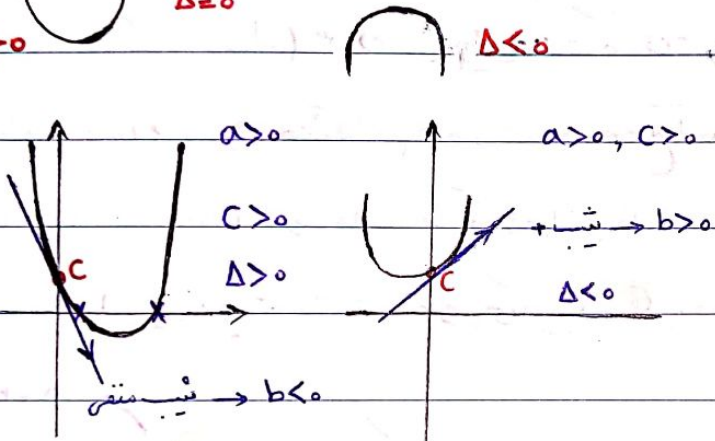 >0
Δ≤0
Δ<0
a>0
C>0
Δ>0
C
شیب منفی → b<0
a>0, C>0
شیب + → b>0
C
Δ<0